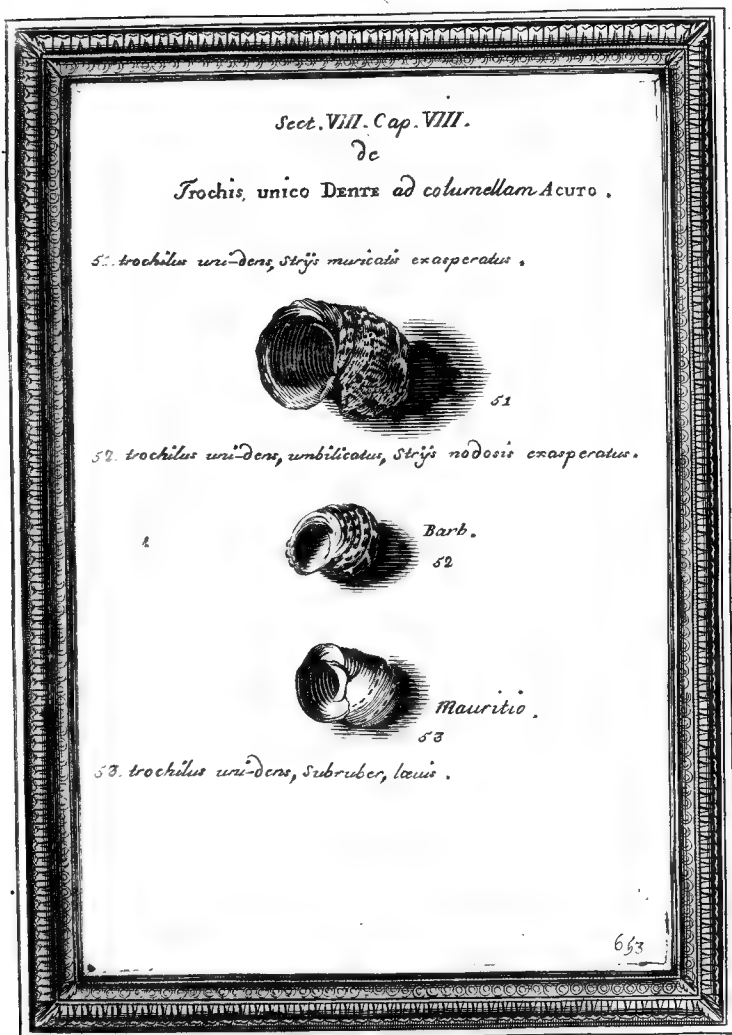 Sect. VIII. Cap. VIII.
de
Trochis, unico DENTE ad columellam ACUTO.
51. trochilus uni-dens, Strijs muricatis exasperatus.
51
52. trochilus uni-dens, umbilicatus, Strijs nodosis exasperatus.
Barb.
52
Mauritio.
53
53. trochilus uni-dens, Subruber, lævis.
653